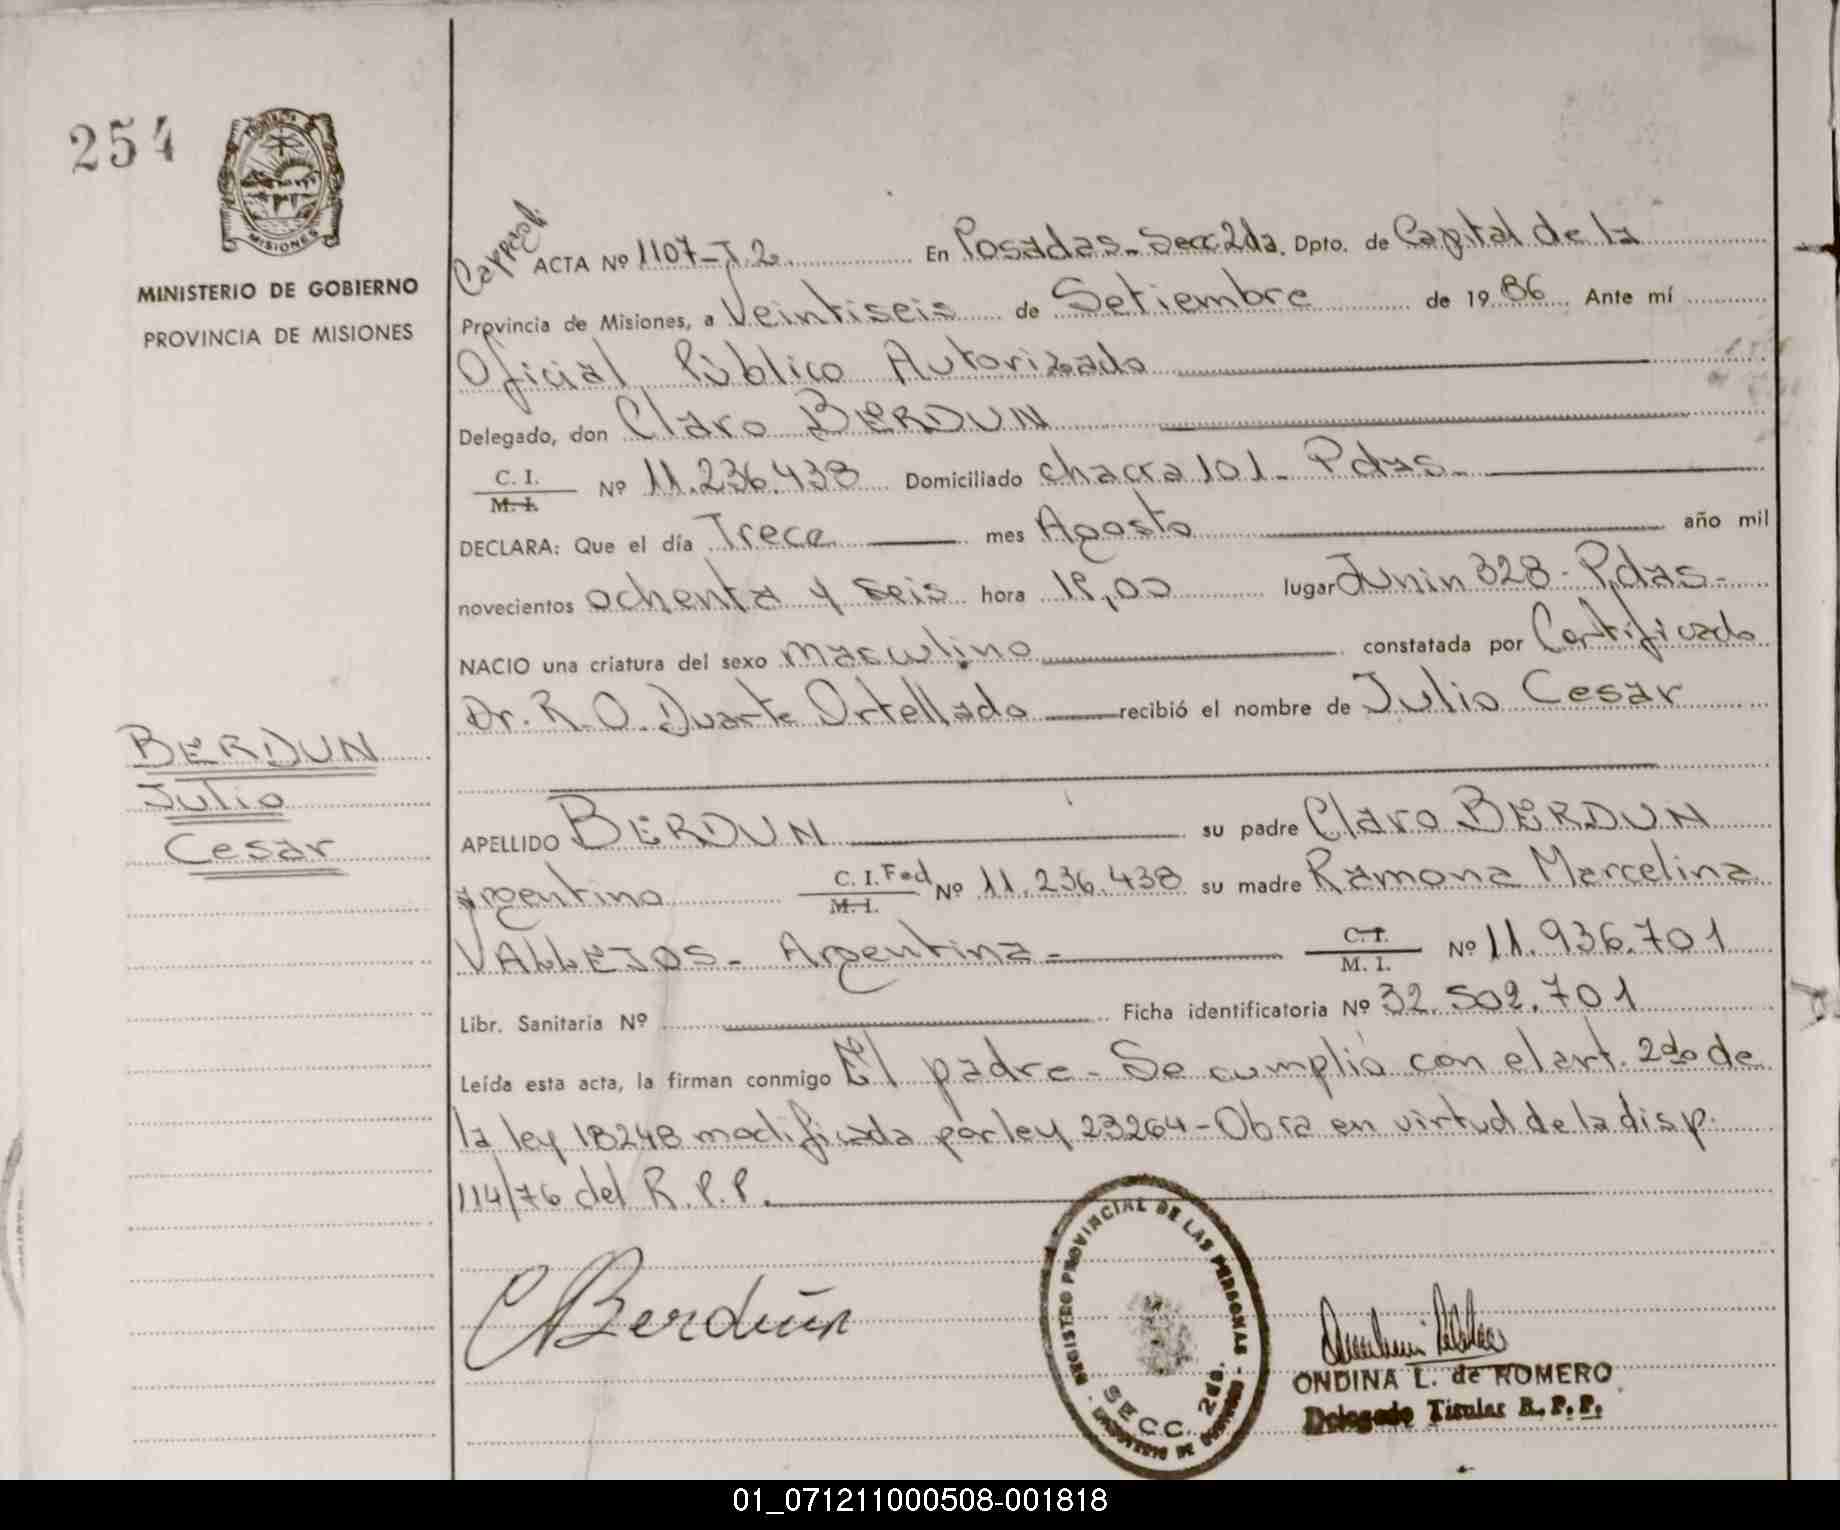 254
PROVINCIA
MISIONES
MINISTERIO DE GOBIERNO
PROVINCIA DE MISIONES
BERDUN
Julio
Cesar
ACTA Nº 1107-T.2. En Posadas-Secc 2da. Dpto. de Capital de la
Provincia de Misiones, a Veintiseis de Setiembre de 1986 Ante mí
Oficial Público Autorizado
Delegado, don Claro BERDUN
C. I.
M. I. Nº 11.236.438 Domiciliado chacra 101 - Pdas-
DECLARA: Que el día Trece mes Agosto año mil
novecientos ochenta y seis hora lugar Junin 328 - Pdas-
NACIO una criatura del sexo masculino constatada por Certificado
Dr. R. O. Duarte Ortellado recibió el nombre de Julio Cesar
APELLIDO BERDUN su padre Claro BERDUN
argentino C. I. Fed Nº 11.236.438 su madre Ramona Marcelina
M. I.
VALLEJOS - Argentina - C. I.
M. I. Nº 11.936.701
Libr. Sanitaria Nº Ficha identificatoria Nº 32.502.701
Leída esta acta, la firman conmigo El padre - Se cumplió con el art. 2do de
la ley 18248 modificada por ley 23264 - Obra en virtud de la disp.
114/76 del R. P. P.
C Berdún
REGISTRO PROVINCIAL DE LAS PERSONAS
SECC. 2da.
ONDINA L. de ROMERO
Delegado Titular R. P. P.
01_071211000508-001818